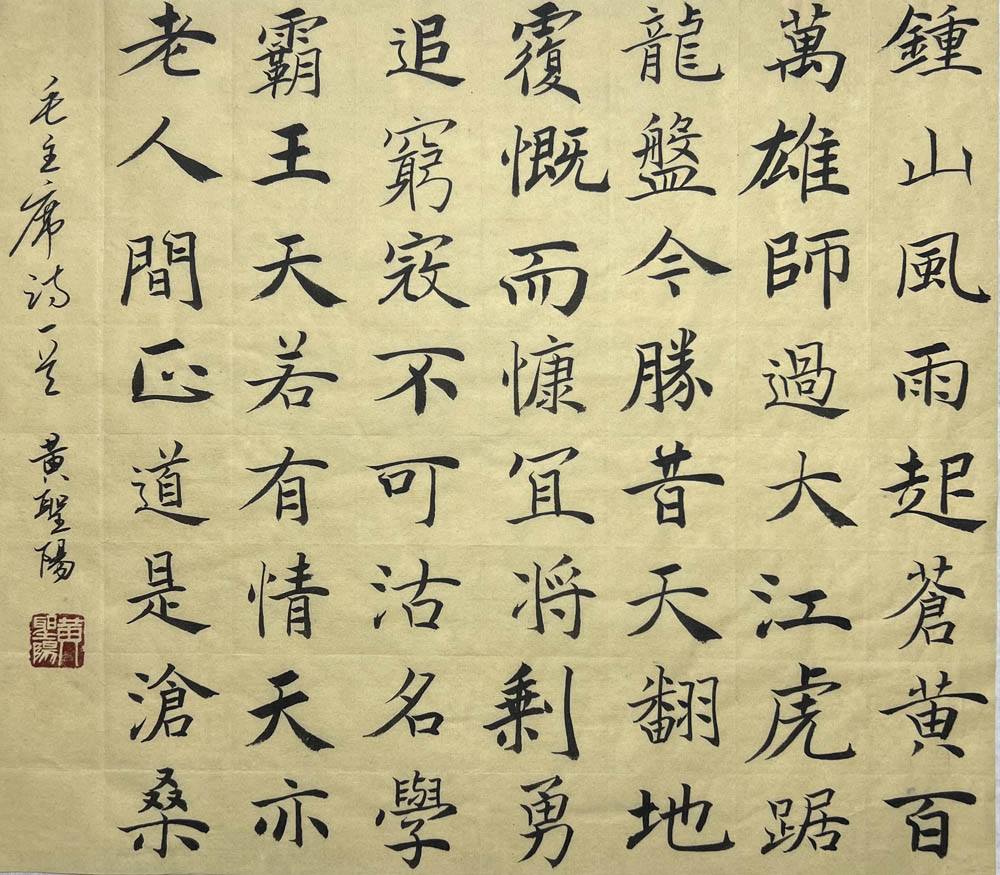 鍾山風雨起蒼黄百
萬雄師過大江虎踞
龍盤今勝昔天翻地
覆慨而慷宜将剩勇
追窮寇不可沽名學
霸王天若有情天亦
老人間正道是滄桑
毛主席诗一首 黄聖陽
黄聖陽